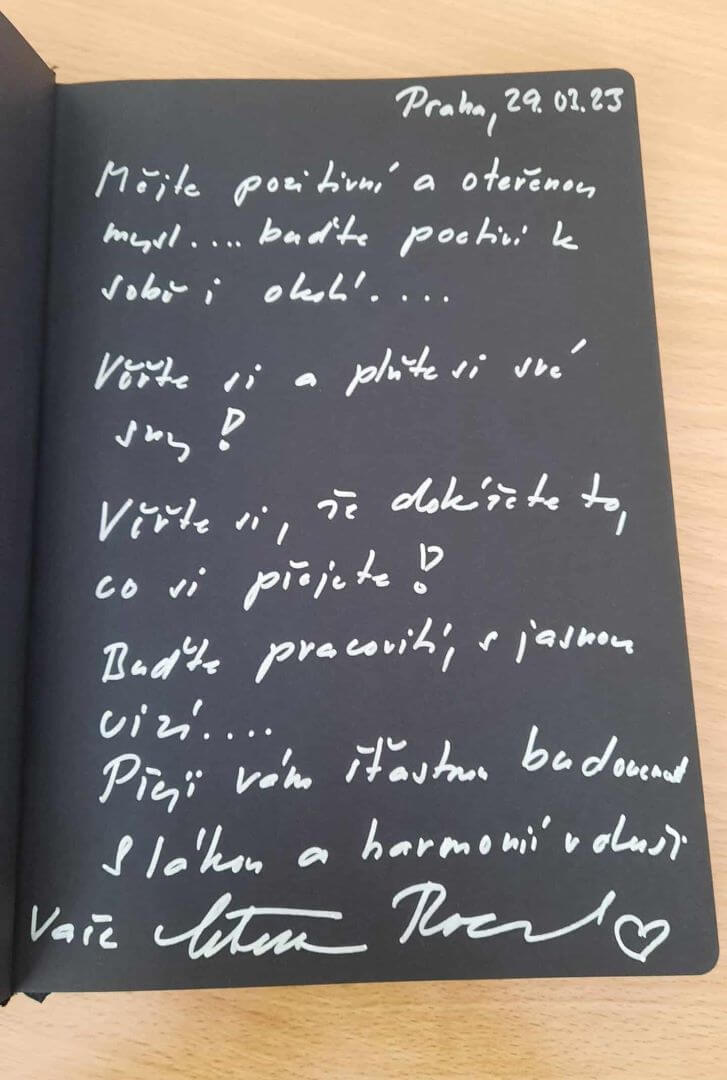 Praha, 29.03.23
Mějte pozitivní a otevřenou
mysl.... buďte poctiví k
sobě i okolí....
Věřte si a plňte si své
sny!
Věřte si, že dokážete to,
co si přejete!
Buďte pracovití, s jasnou
vizí....
Přeji vám šťastnou budoucnost
s láskou a harmonií v duši
Vaše